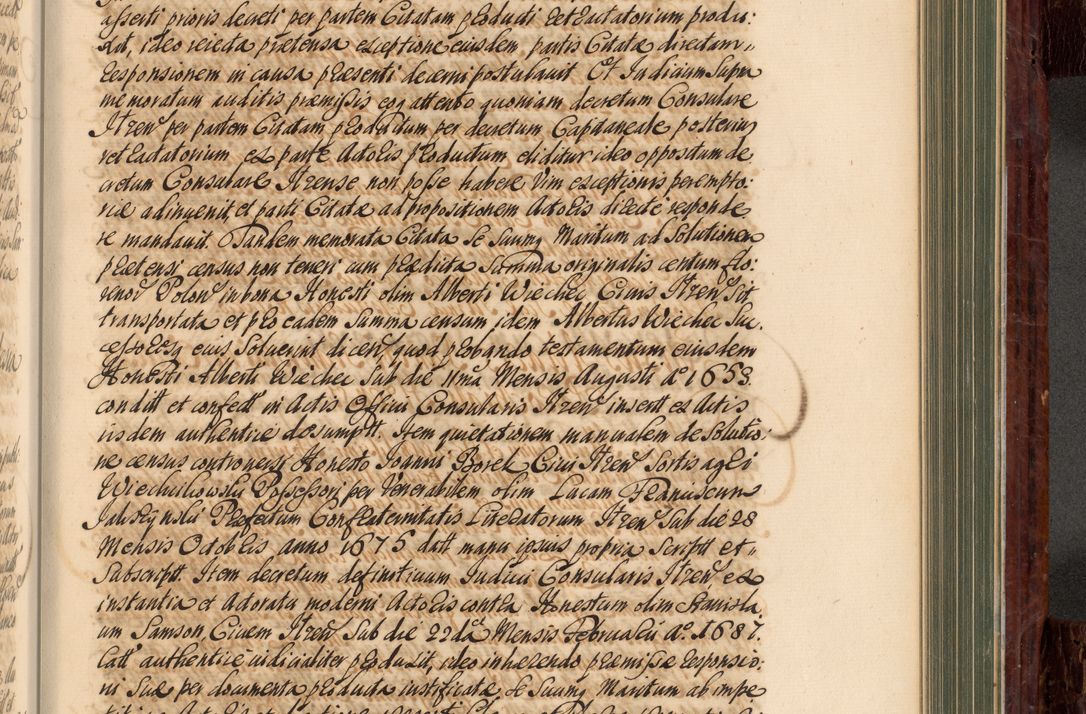 asserti prioris decreti per partem Citatam producti retractatorium produ:
xit, ideo reiecta prætensa exceptione eiusdem partis Citatæ directam
responsionem in causa præsenti decerni postulavit. Et Iudicium Supra
memoratum auditis præmissis eoq attento quoniam decretum Consulare
Ilzen per partem Citatam productum per decretum Capitaneale posterius
retractatorium ex parte Actoris productum eliditur ideo oppositum de
cretum Consulare Ilzense non posse habere vim exceptionis perempto:
riæ adinvenit, et parti Citatæ ad propositionem Actoris directe responde
re mandavit. Tandem memorata Citata se Suumq Maritum ad Solutionem
prætensi census non teneri cum prædicta Summa originalis centum flo:
renor Polon in bona Honesti olim Alberti Wiechec Civis Ilzen sit
transportata et pro eadem Summa censum idem Albertus Wiechec Suc.
cessoresq eius Solverint dicen quod probando testamentum eiusdem
Honesti Alberti Wiechec Sub die 11ma Mensis Augusti aº 1653
conditt et confectt in Actis Officii Consularis Ilzen insertt ex Actis
iisdem authentice desumptt. Item quietationem manualem de Solutio:
ne census controversi Honesto Ioanni Borek Civi Ilzen Sortis agri
Wiechcikowski Possessori per Venerabilem olim Lucam Franciscum
Jakszynski Præfectum Confraternitatis Literatorum Ilzen Sub die 28
Mensis Octobris anno 1675 datt manu ipsius propria Scriptt et
Subscriptt. Item decretum definitivum Iudicii Consularis Ilzen ex
instantia et Adoratu moderni Actoris contra Honestum olim Stanisla
um Samson Civem Ilzen Sub die 22da Mensis Februarii aº 1687.
latt authentice iudicialiter produxit, ideo inhærendo præmissæ responsio:
ni Suæ per documenta producta iustificatæ Se Suumq Maritum ab impe